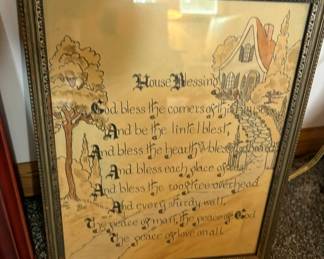 House Blessing
God bless the corners of this house
And be the lintel blest,
And bless the hearth, & bless the board
And bless each place of rest
And bless the rooftree overhead
And every sturdy wall,
The peace of man, the peace of God
The peace of love on all.